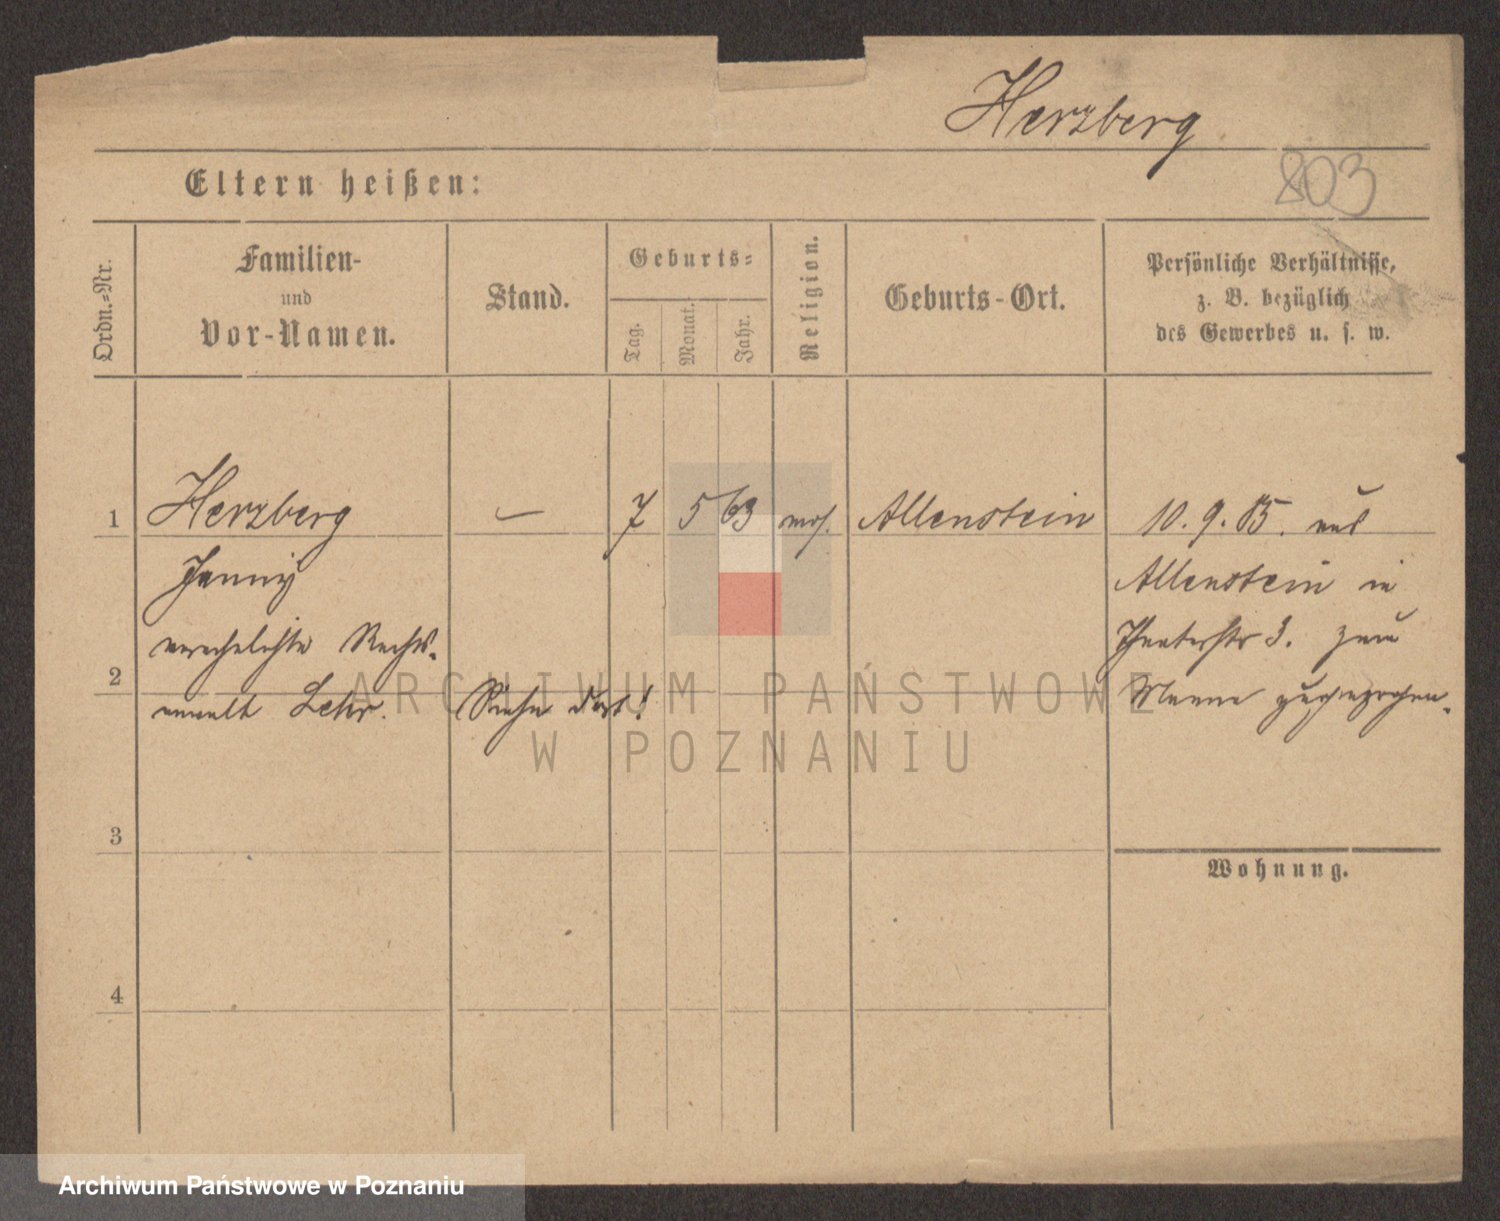 Herzberg
803
Eltern heißen:
Ordn.=Nr.
Familien-
und
Vor-Namen.
Stand.
Geburts=
Tag.
Monat.
Jahr.
Religion.
Geburts-Ort.
Persönliche Verhältnisse,
z. B. bezüglich
des Gewerbes u. s. w.
1 Herzberg — 7 5 63 mos. Allenstein 10. 9. 85. aus
Jenny Allenstein in
verehelichte Rechts- Theaterstr 3. zum
2
anwalt Lehr. Siehe dort! Manne zugezogen.
ARCHIWUM PAŃSTWOWE
W POZNANIU
3
Wohnung.
4
Archiwum Państwowe w Poznaniu